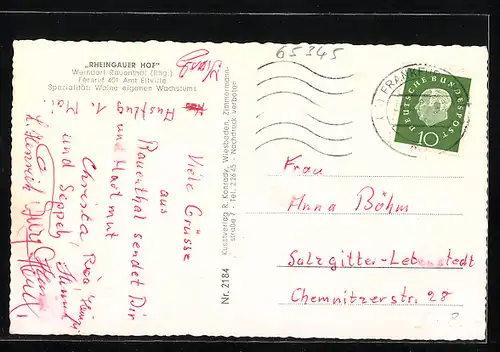 „RHEINGAUER HOF"
Weindorf Rauenthal (Rhg.)
Fernruf 401 Amt Eltville
Spezialität: Weine eigenen Wachstums
65345
Ausflug 1. Mai
Viele Grüsse
aus
Rauenthal sendet Dir
und Hartmut
Christa,
und Seppel,
Heinrich
Kunstverlag R. Konrady, Wiesbaden, Zimmermann-
straße 7 - Tel. 22645 - Nachdruck verboten
Nr. 2184
FRANKF
DEUTSCHE BUNDESPOST
10
Frau
Anna Böhm
Salzgitter-Lebenstedt
Chemnitzerstr. 28